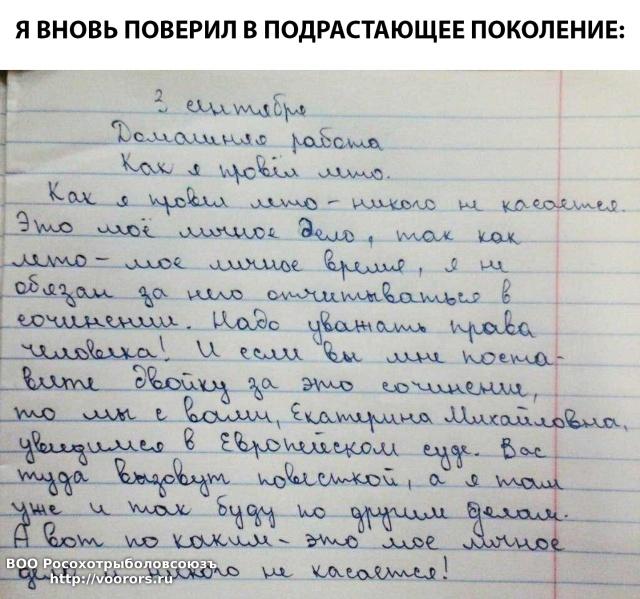 Я ВНОВЬ ПОВЕРИЛ В ПОДРАСТАЮЩЕЕ ПОКОЛЕНИЕ:
3 сентября
Домашняя работа
Как я провёл лето.
Как я провел лето – никого не касается.
Это моё личное дело, так как
лето – мое личное время, я не
обязан за него отчитываться в
сочинении. Надо уважать права
человека! И если вы мне поста-
вите двойку за это сочинение,
то мы с вами, Екатерина Михайловна,
увидимся в Европейском суде. Вас
туда вызовут повесткой, а я там
уже и так буду по другим делам.
А вот по каким – это мое личное
дело и никого не касается!
ВОО Росохотрыболовсоюзъ
http://voorors.ru